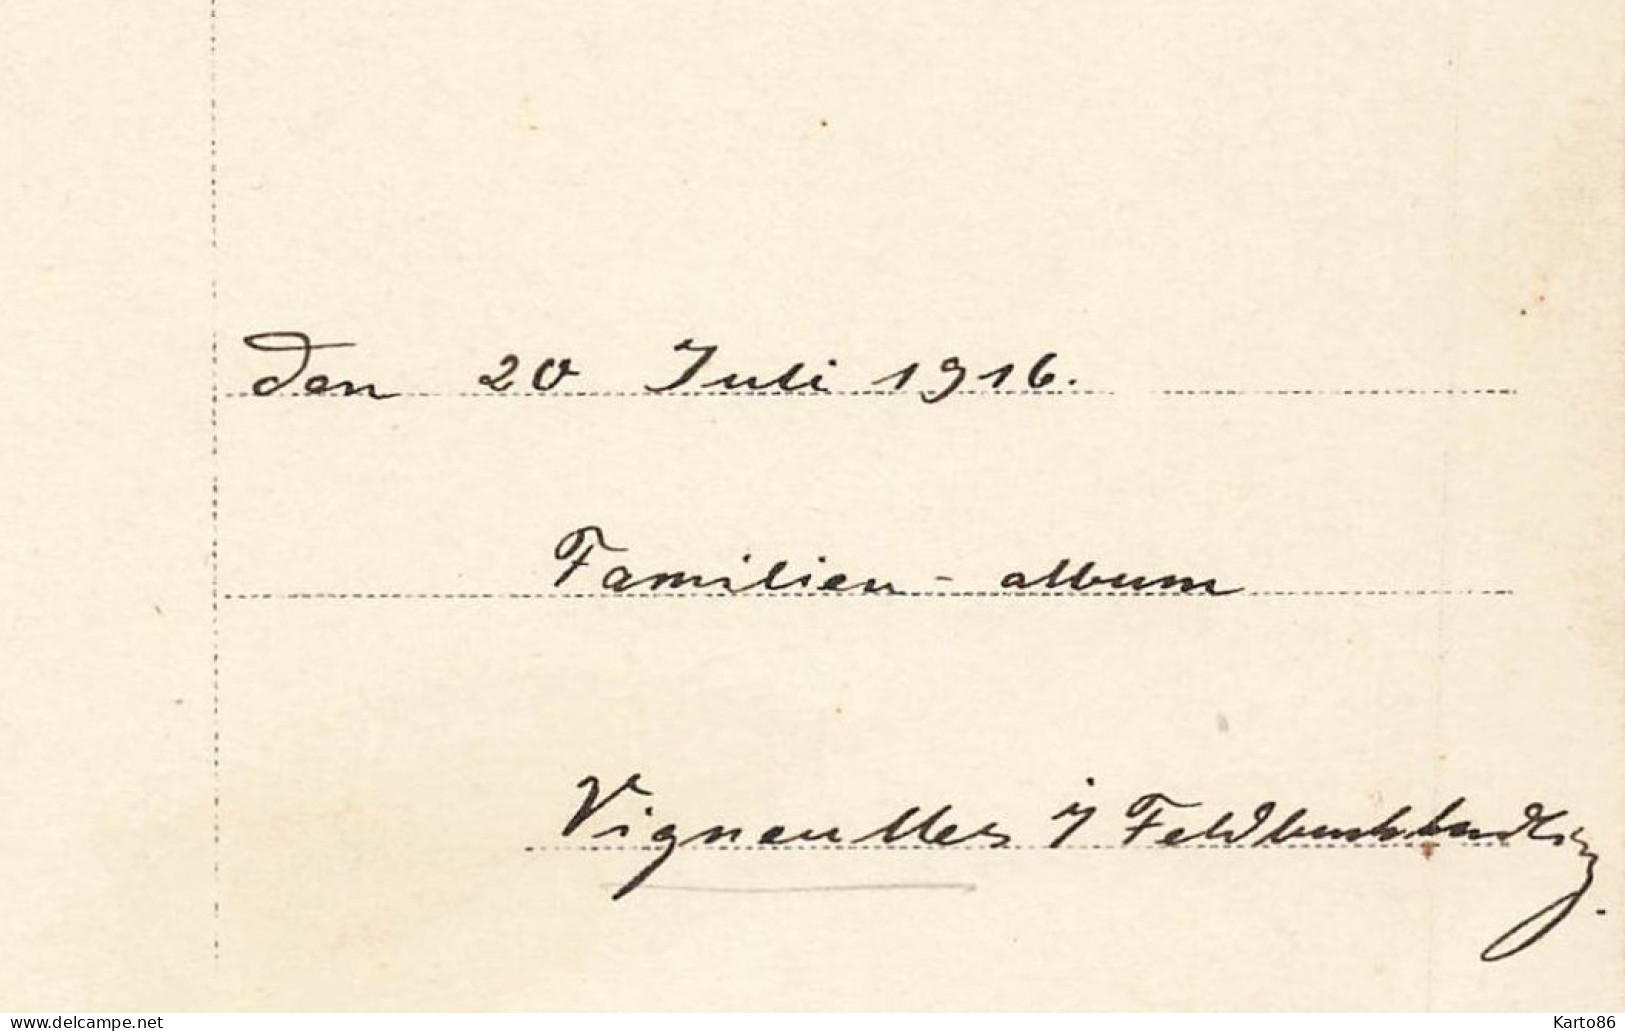 den 20 Juli 1916.
Familien - album
Vigneulles i/ Feldbuchhandlung.
www.delcampe.net
Karto86